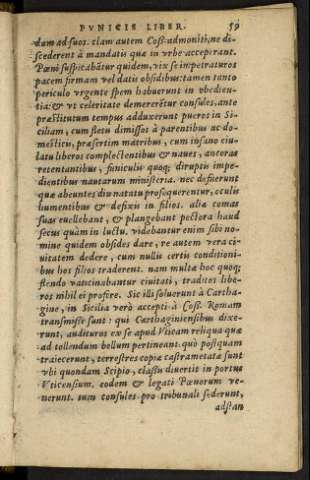 PVNICIS LIBER. 59
dam ad suos. clam autem Coss. admoniti, ne di-
scederent à mandatis quæ in vrbe acceperant.
Pœni suspicabãtur quidem, vix se impetraturos
pacem firmam vel datis obsidibus: tamen tanto
periculo vrgente spem habuerunt in obedien-
tia: & vt celeritate demererẽtur consules, ante
præstitutum tempus adduxerunt pueros in Si-
ciliam, cum fletu dimissos à parentibus ac do-
mesticis, præsertim matribus, cum insano eiu-
latu liberos complectentibus & naues, ancoras
retentantibus, funiculis quoq; diruptis impe-
dientibus nautarum ministeria. nec defuerunt
quæ abeuntes diu natatu prosequerentur, oculis
humentibus & defixis in filios. aliæ comas
suas euellebant, & plangebant pectora haud
secus quàm in luctu. videbantur enim sibi no-
mine quidem obsides dare, re autem vera ci-
uitatem dedere, cum nullis certis conditioni-
bus hos filios traderent. nam multæ hoc quoq;
flendo vaticinabantur ciuitati, traditos libe-
ros nihil ei profore. Sic illi soluerunt à Cartha-
gine, in Sicilia verò accepti à Coss. Romam
transmissi sunt: qui Carthaginensibus dixe-
runt, audituros ex se apud Vticam reliqua quæ
ad tollendum bellum pertineant. quò postquam
traiecerunt, terrestres copiæ castrametatæ sunt
vbi quondam Scipio, classis diuertit in portus
Vticensium. eodem & legati Pœnorum ve-
nerunt. tum consules pro tribunali sederunt,
adstan